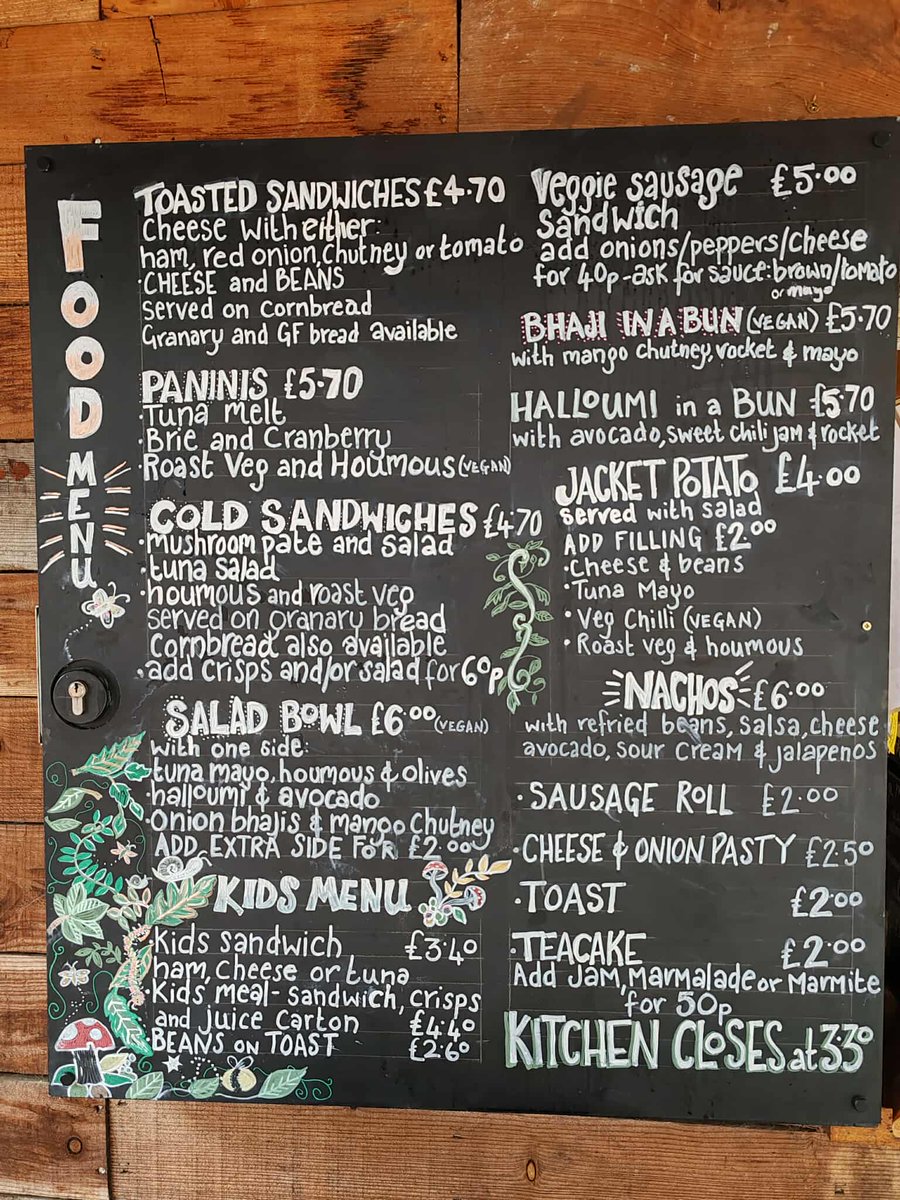 FOOD MENU
TOASTED SANDWICHES £4.70
Cheese with either:
ham, red onion, chutney or tomato
·CHEESE and BEANS
served on cornbread
Granary and GF bread available
PANINIS £5.70
·Tuna melt
·Brie and Cranberry
·Roast Veg and Houmous (VEGAN)
COLD SANDWICHES £4.70
·mushroom pate and salad
·tuna salad
·houmous and roast veg
served on granary bread
Cornbread also available
·add crisps and/or salad for 60p
SALAD BOWL £6.00 (VEGAN)
with one side:
·tuna mayo, houmous & olives
·halloumi & avocado
·onion bhajis & mango chutney
ADD EXTRA SIDE FOR £2.00
KIDS MENU
·Kids sandwich £3.40
ham, cheese or tuna
·Kids meal - sandwich, crisps
and juice carton £4.40
·BEANS ON TOAST £2.60
Veggie sausage £5.00
sandwich
add onions/peppers/cheese
for 40p - ask for sauce: brown/tomato
or mayo
BHAJI IN A BUN (VEGAN) £5.70
with mango chutney, rocket & mayo
HALLOUMI in a BUN £5.70
with avocado, sweet chili jam & rocket
JACKET POTATO £4.00
served with salad
ADD FILLING £2.00
·Cheese & beans
·Tuna Mayo
·Veg Chilli (VEGAN)
·Roast veg & houmous
NACHOS £6.00
with refried beans, salsa, cheese
avocado, sour cream & jalapenos
·SAUSAGE ROLL £2.00
·CHEESE & ONION PASTY £2.50
·TOAST £2.00
·TEACAKE £2.00
Add Jam, Marmalade or Marmite
for 50p
KITCHEN CLOSES at 3.30